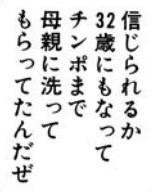 信じられるか
32歳にもなって
チンポまで
母親に洗って
もらってたんだぜ